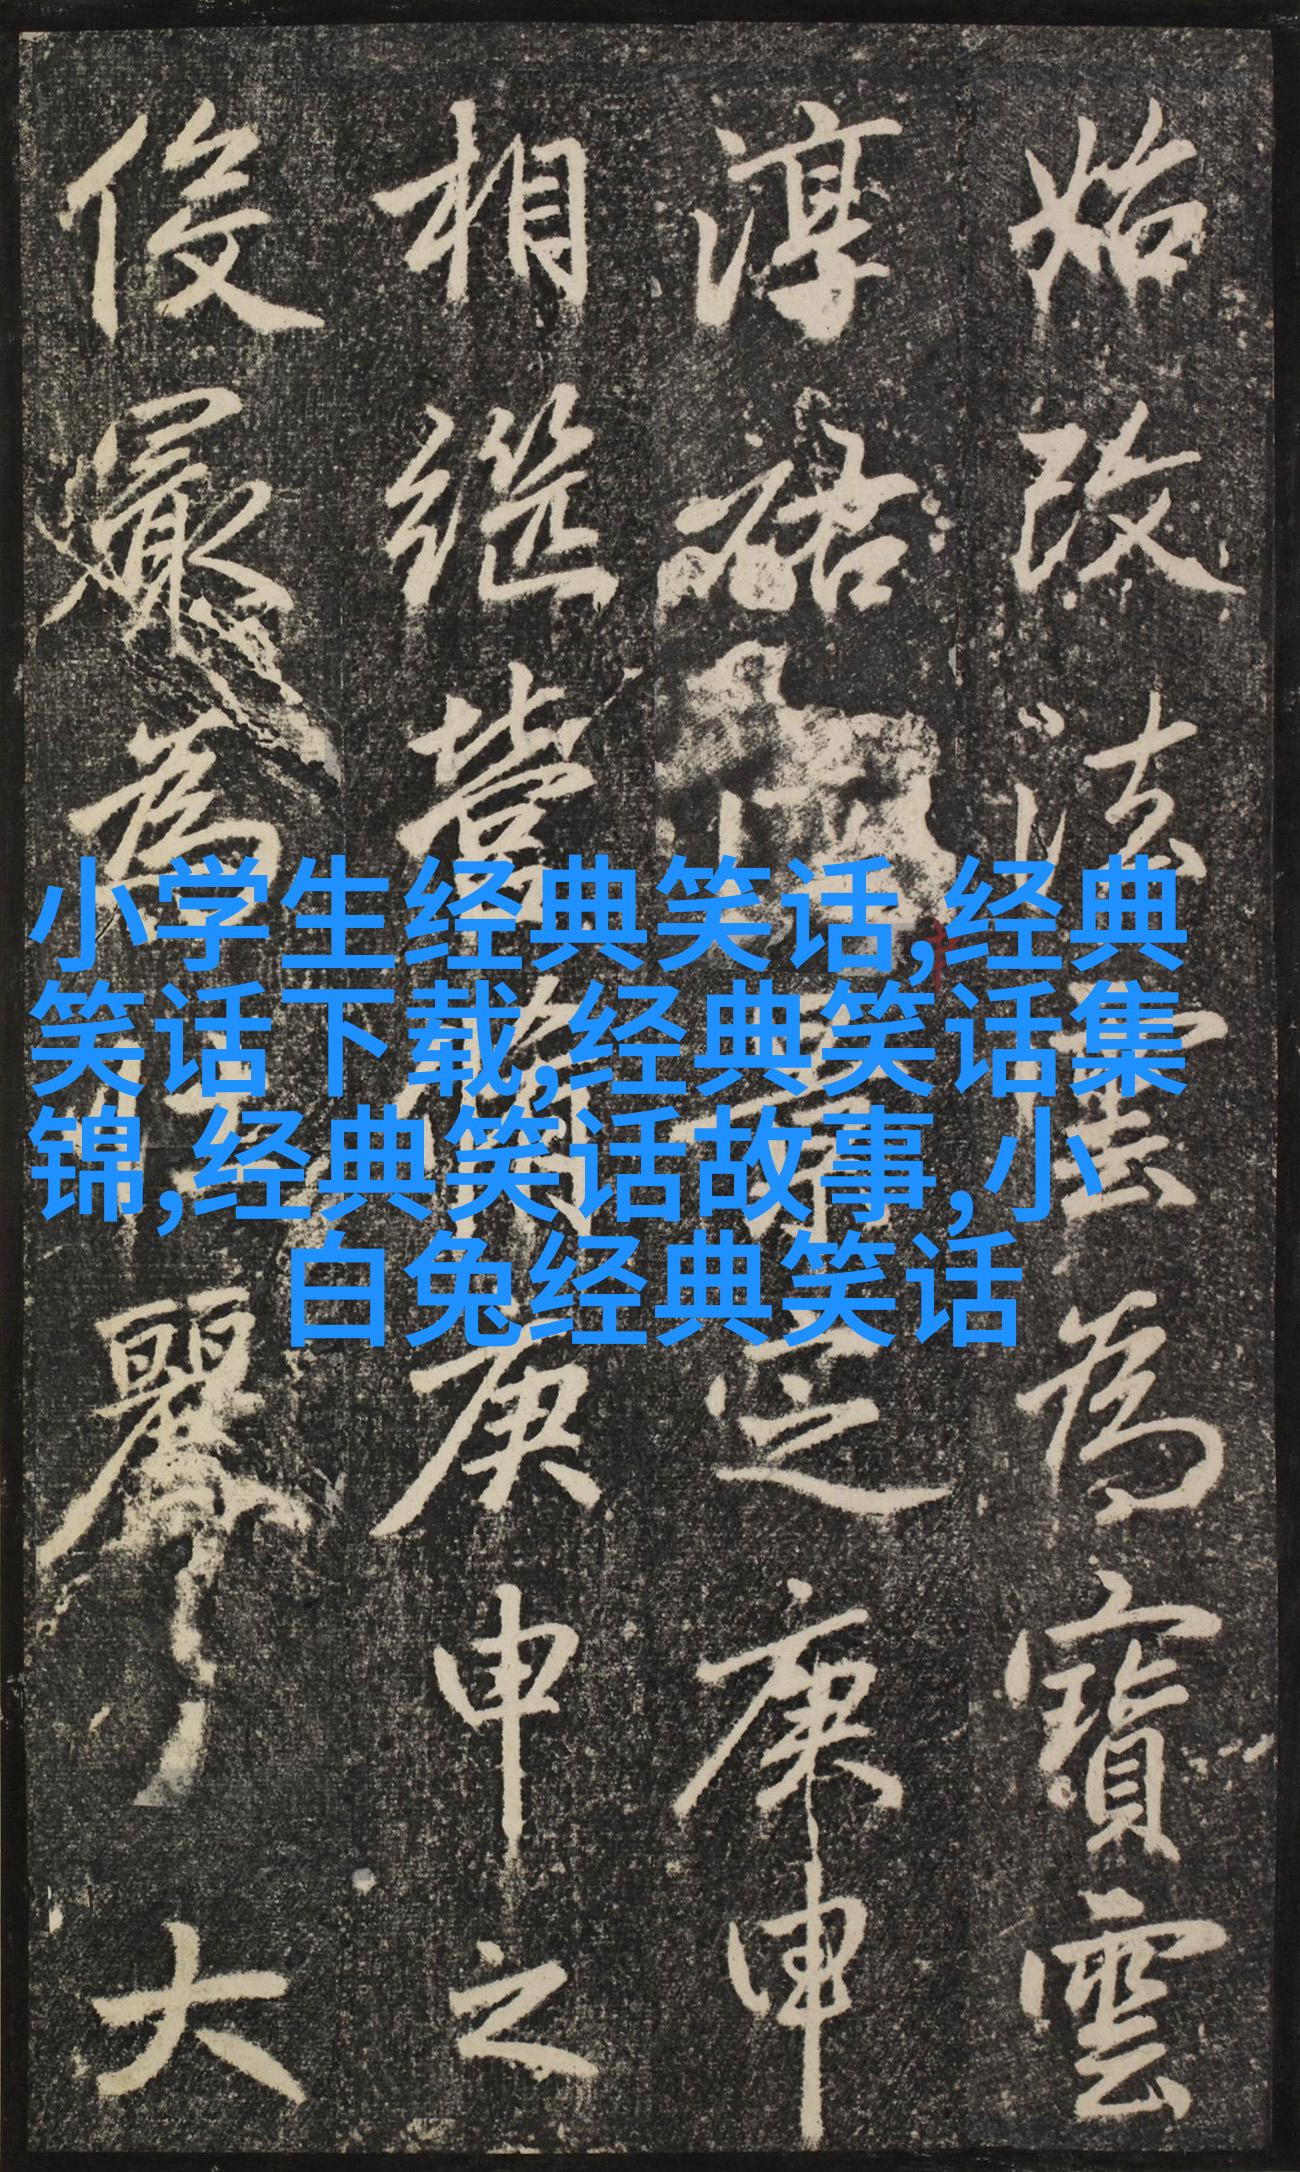 始改法雲為寶雲
淳祐定庚申
相繼庚申之
役最為麗大
小学生经典笑话,经典
笑话下载,经典笑话集
锦,经典笑话故事,小
白兔经典笑话